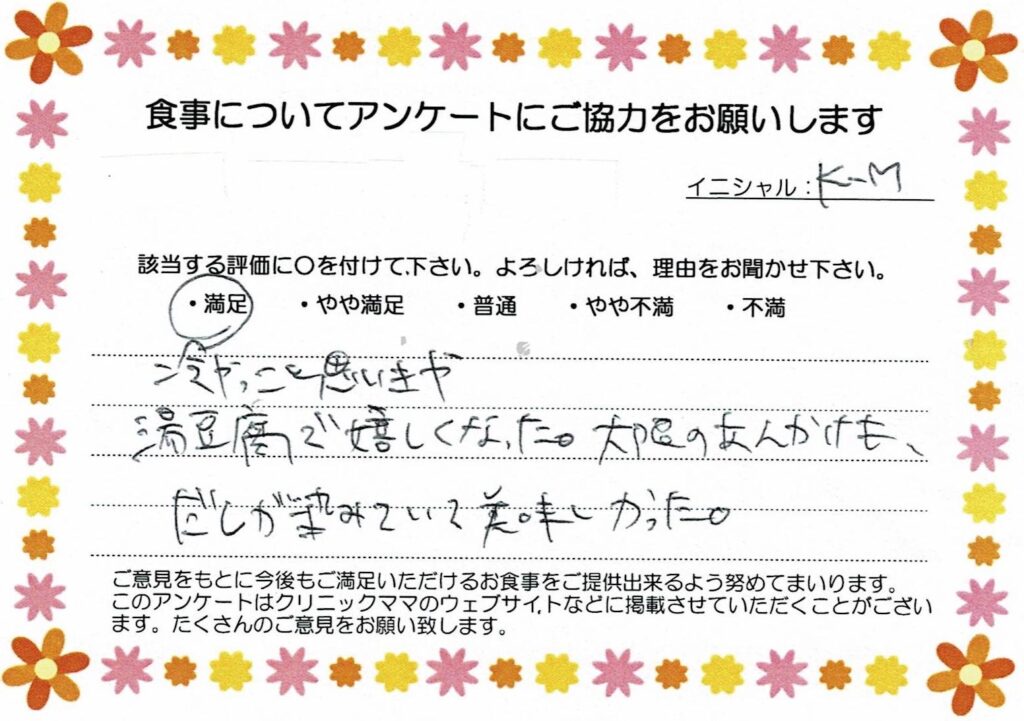 食事についてアンケートにご協力をお願いします
イニシャル：K-M
該当する評価に〇を付けて下さい。よろしければ、理由をお聞かせ下さい。
・満足 ・やや満足 ・普通 ・やや不満 ・不満
冷やっこと思いきや
湯豆腐で嬉しくなった。大根のあんかけも、
だしが染みていて美味しかった。
ご意見をもとに今後もご満足いただけるお食事をご提供出来るよう努めてまいります。
このアンケートはクリニックママのウェブサイトなどに掲載させていただくことがござい
ます。たくさんのご意見をお願い致します。